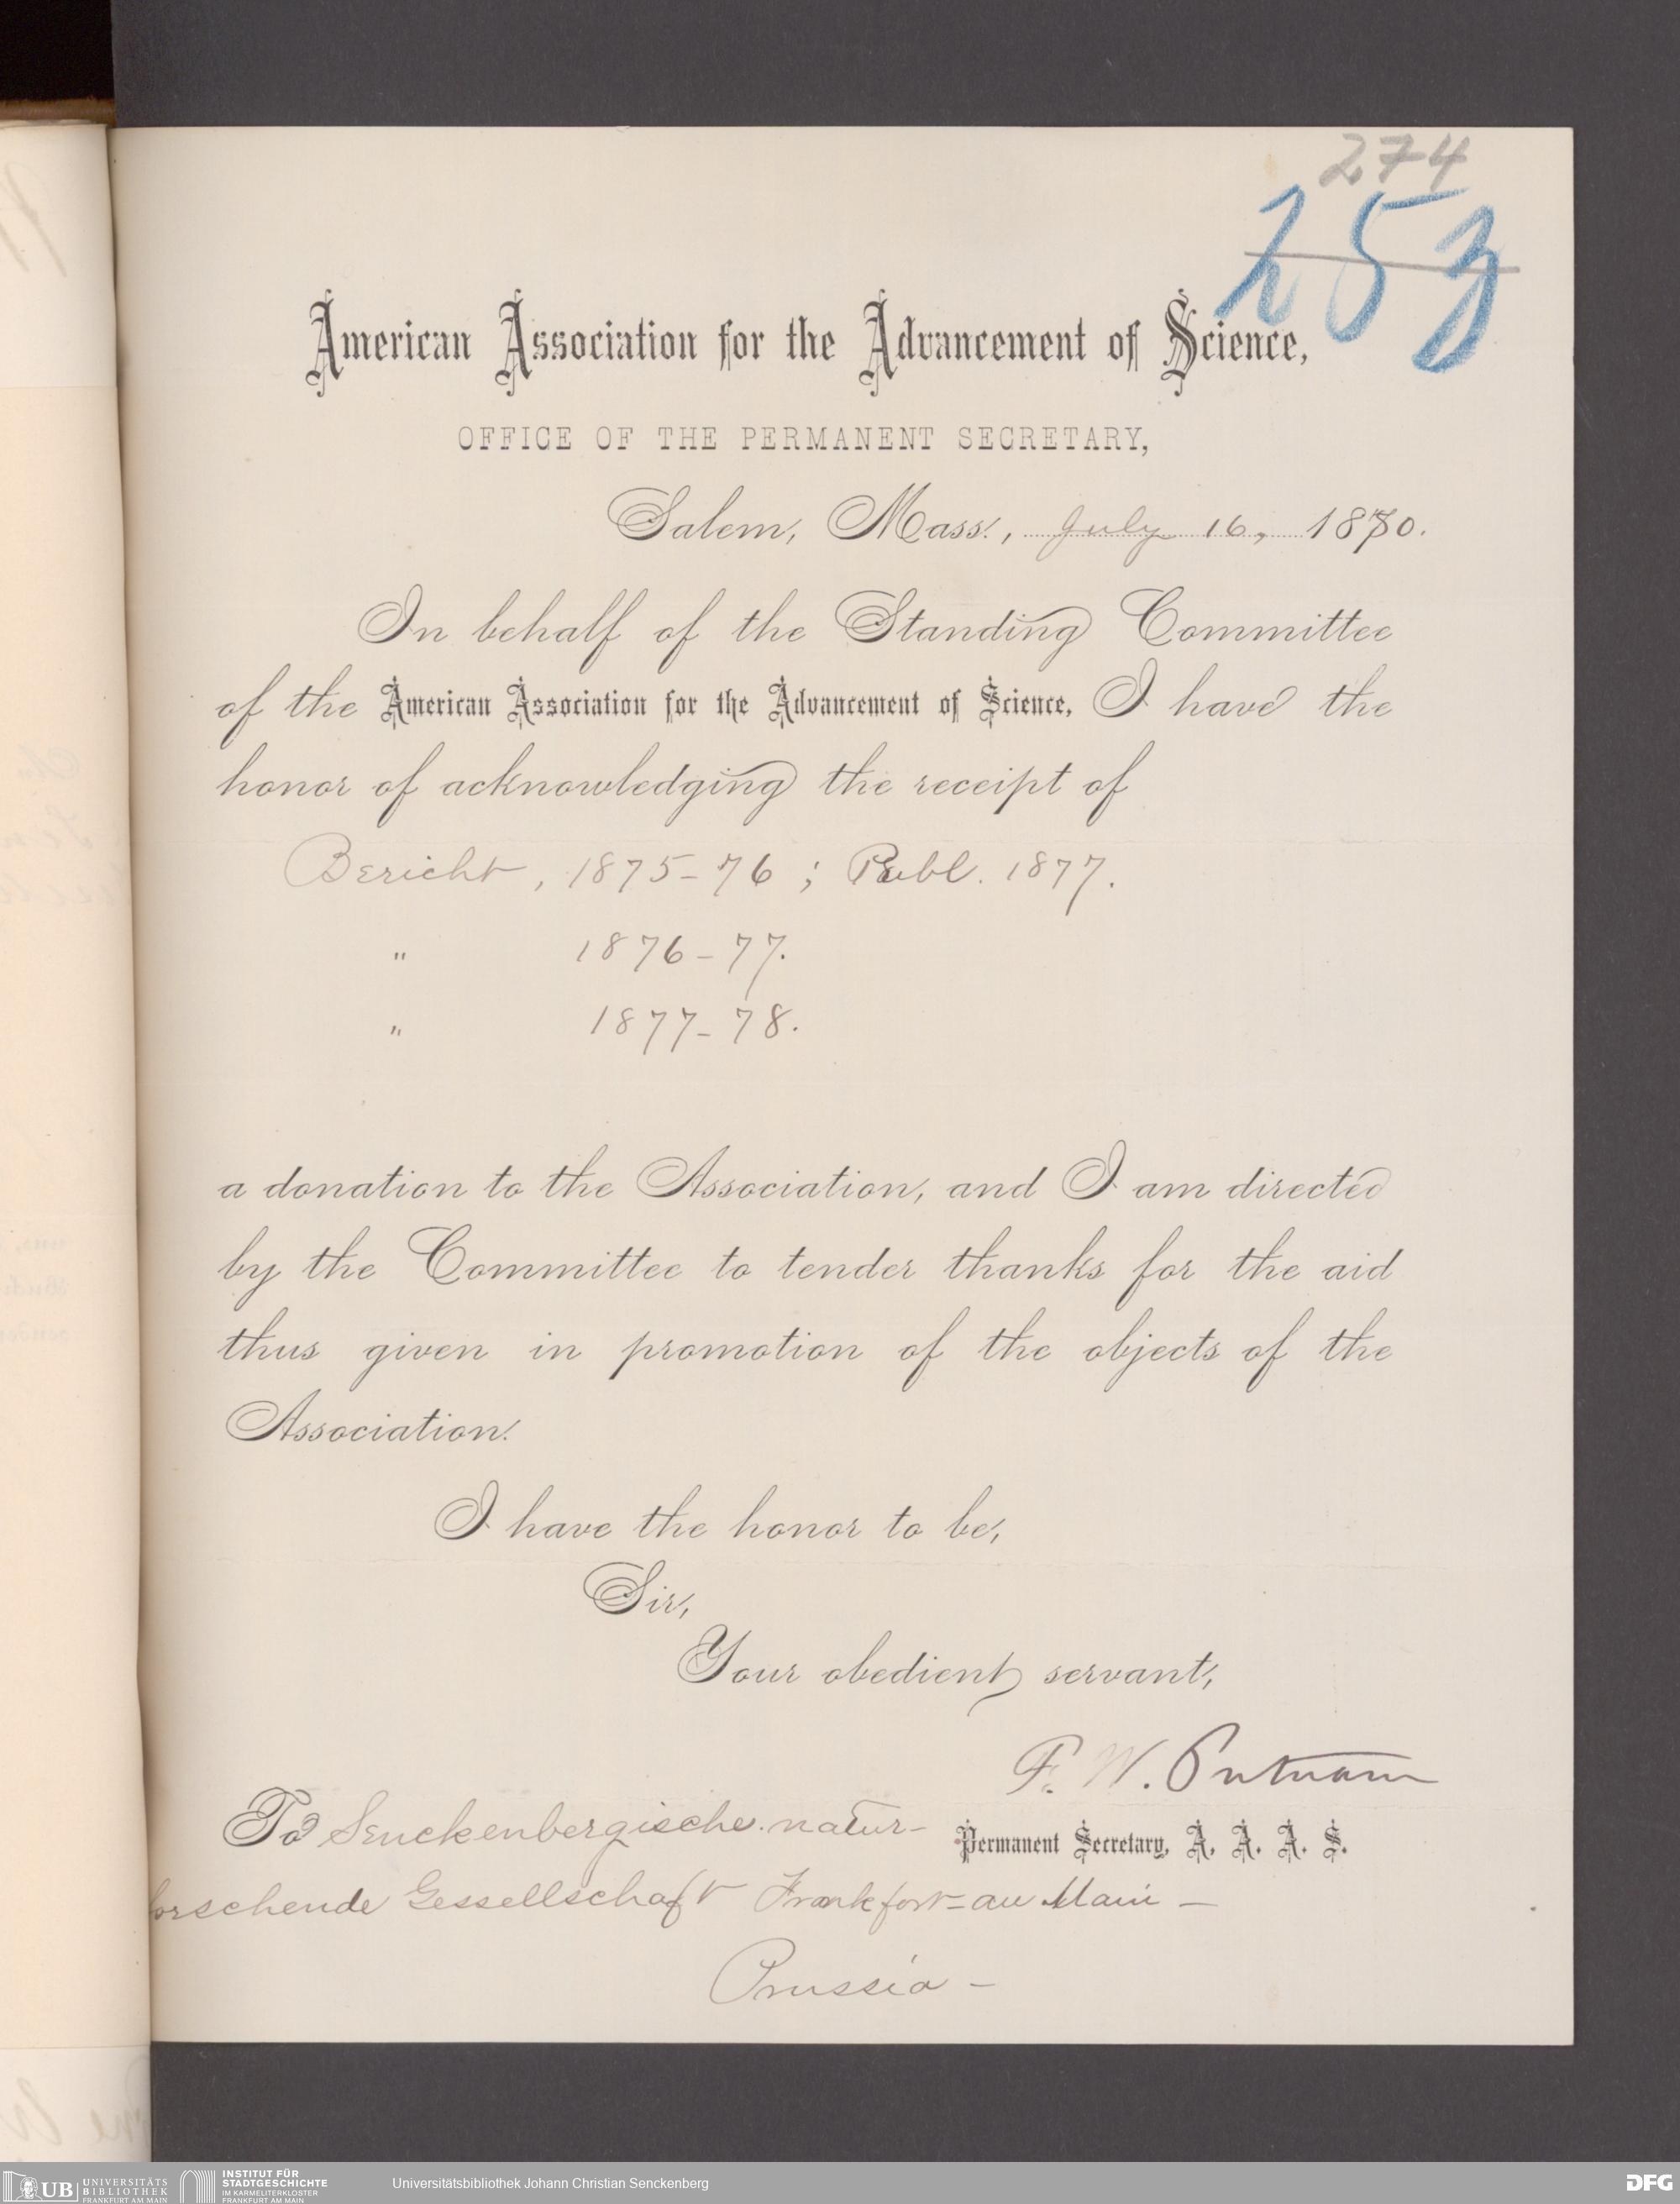 274
253
American Association for the Advancement of Science,
OFFICE OF THE PERMANENT SECRETARY,
Salem, Mass., July 16, 1880.
In behalf of the Standing Committee
of the American Association for the Advancement of Science, I have the
honor of acknowledging the receipt of
Bericht, 1875-76; Publ. 1877.
" 1876-77.
" 1877-78.
a donation to the Association, and I am directed
by the Committee to tender thanks for the aid
thus given in promotion of the objects of the
Association.
I have the honor to be,
Sir,
Your obedient servant,
F. W. Putnam
Permanent Secretary, A. A. A. S.
To Senckenbergische natur-
forschende Gessellschaft Frankfort=au Main —
Prussia —
UB UNIVERSITÄTS
BIBLIOTHEK
FRANKFURT AM MAIN
INSTITUT FÜR
STADTGESCHICHTE
IM KARMELITERKLOSTER
FRANKFURT AM MAIN
Universitätsbibliothek Johann Christian Senckenberg
DFG